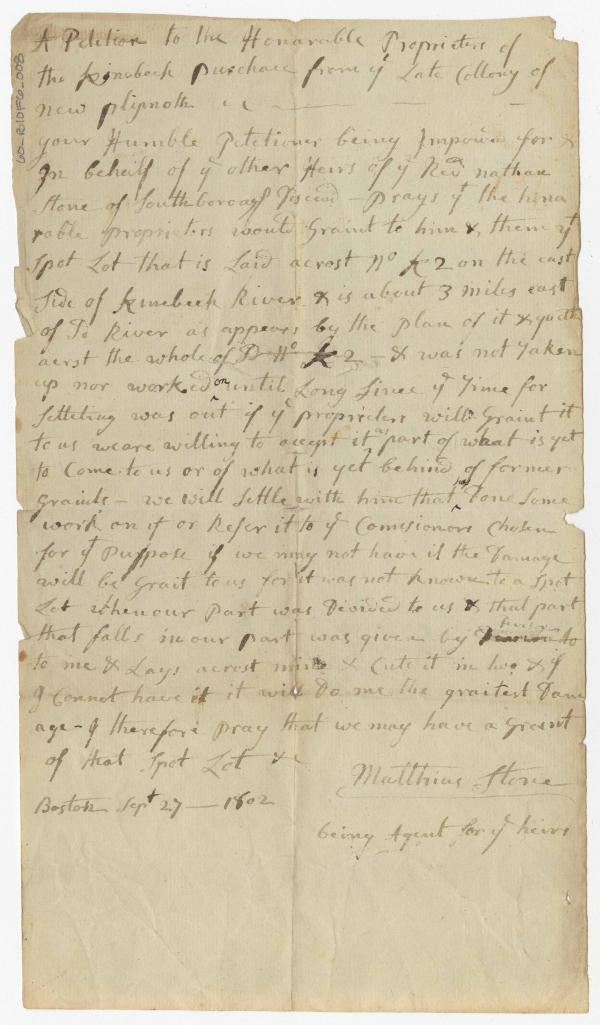 A Petition to the Honarable Proprieters of
the Kinebeck purchace from ye Late Collony of
new plymoth
your Humble Petitioner being Impowrd for &
In behalf of ye other Heirs of ye Revd nathan
Stone of Southborough Descd - Prays yt the hona
rable proprieters would Graint to him & them yt
Spot Lot that is Laid acrost No K 2 on the east
Side of Kinebeck River & is about 3 miles east
of Sd River as appears by the plan of it & goeth
acrst the whole of No K 2 - & was not Taken
up nor worked on until Long Since ye Time for
Setteling was out if ye proprieters will Graint it
to us we are willing to accept it as part of what is yet
to Come to us or of what is yet behind of former
Graints - we will Settle with him that has Done Some
work on it or Refer it to ye Comisioners Chosen
for yt Purppose if we may not have it the Damage
will be Grait to us for it was not known to a Spot
Lot when our part was Divided to us & that part
that falls in our part was given by to
to me & Lays acrost mine & Cuts it in two & if
I Connot have it it will Do me the graitest Dam
age - I therefore pray that we may have a Greent
of that Spot Lot &c
Matthias Stone
Boston Sept 27 - 1802
being Agent for ye heirs
60-R10F6-008